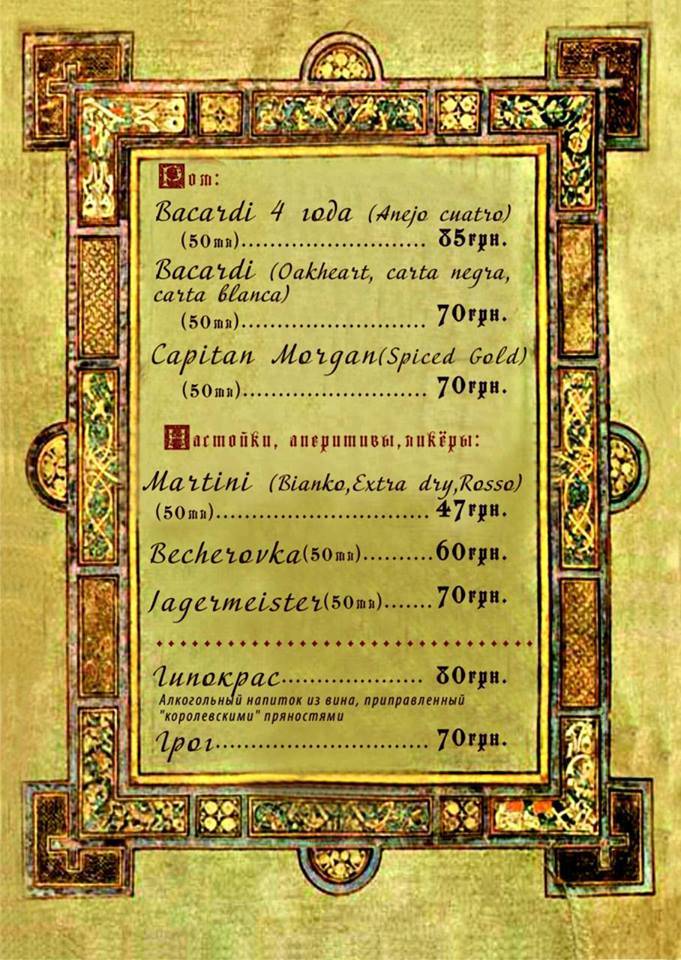 Ром:
Bacardi 4 года (Anejo cuatro)
(50мл)........................... 85грн.
Bacardi (Oakheart, carta negra,
carta blanca)
(50мл)........................... 70грн.
Capitan Morgan(Spiced Gold)
(50мл)........................... 70грн.
Настойки, аперитивы,ликёры:
Martini (Bianko,Extra dry,Rosso)
(50мл)............................... 47грн.
Becherovka(50мл)..........60грн.
Jagermeister(50мл).......70грн.
Гипокрас..................... 80грн.
Алкогольный напиток из вина, приправленный
"королевскими" пряностями
Грог............................... 70грн.